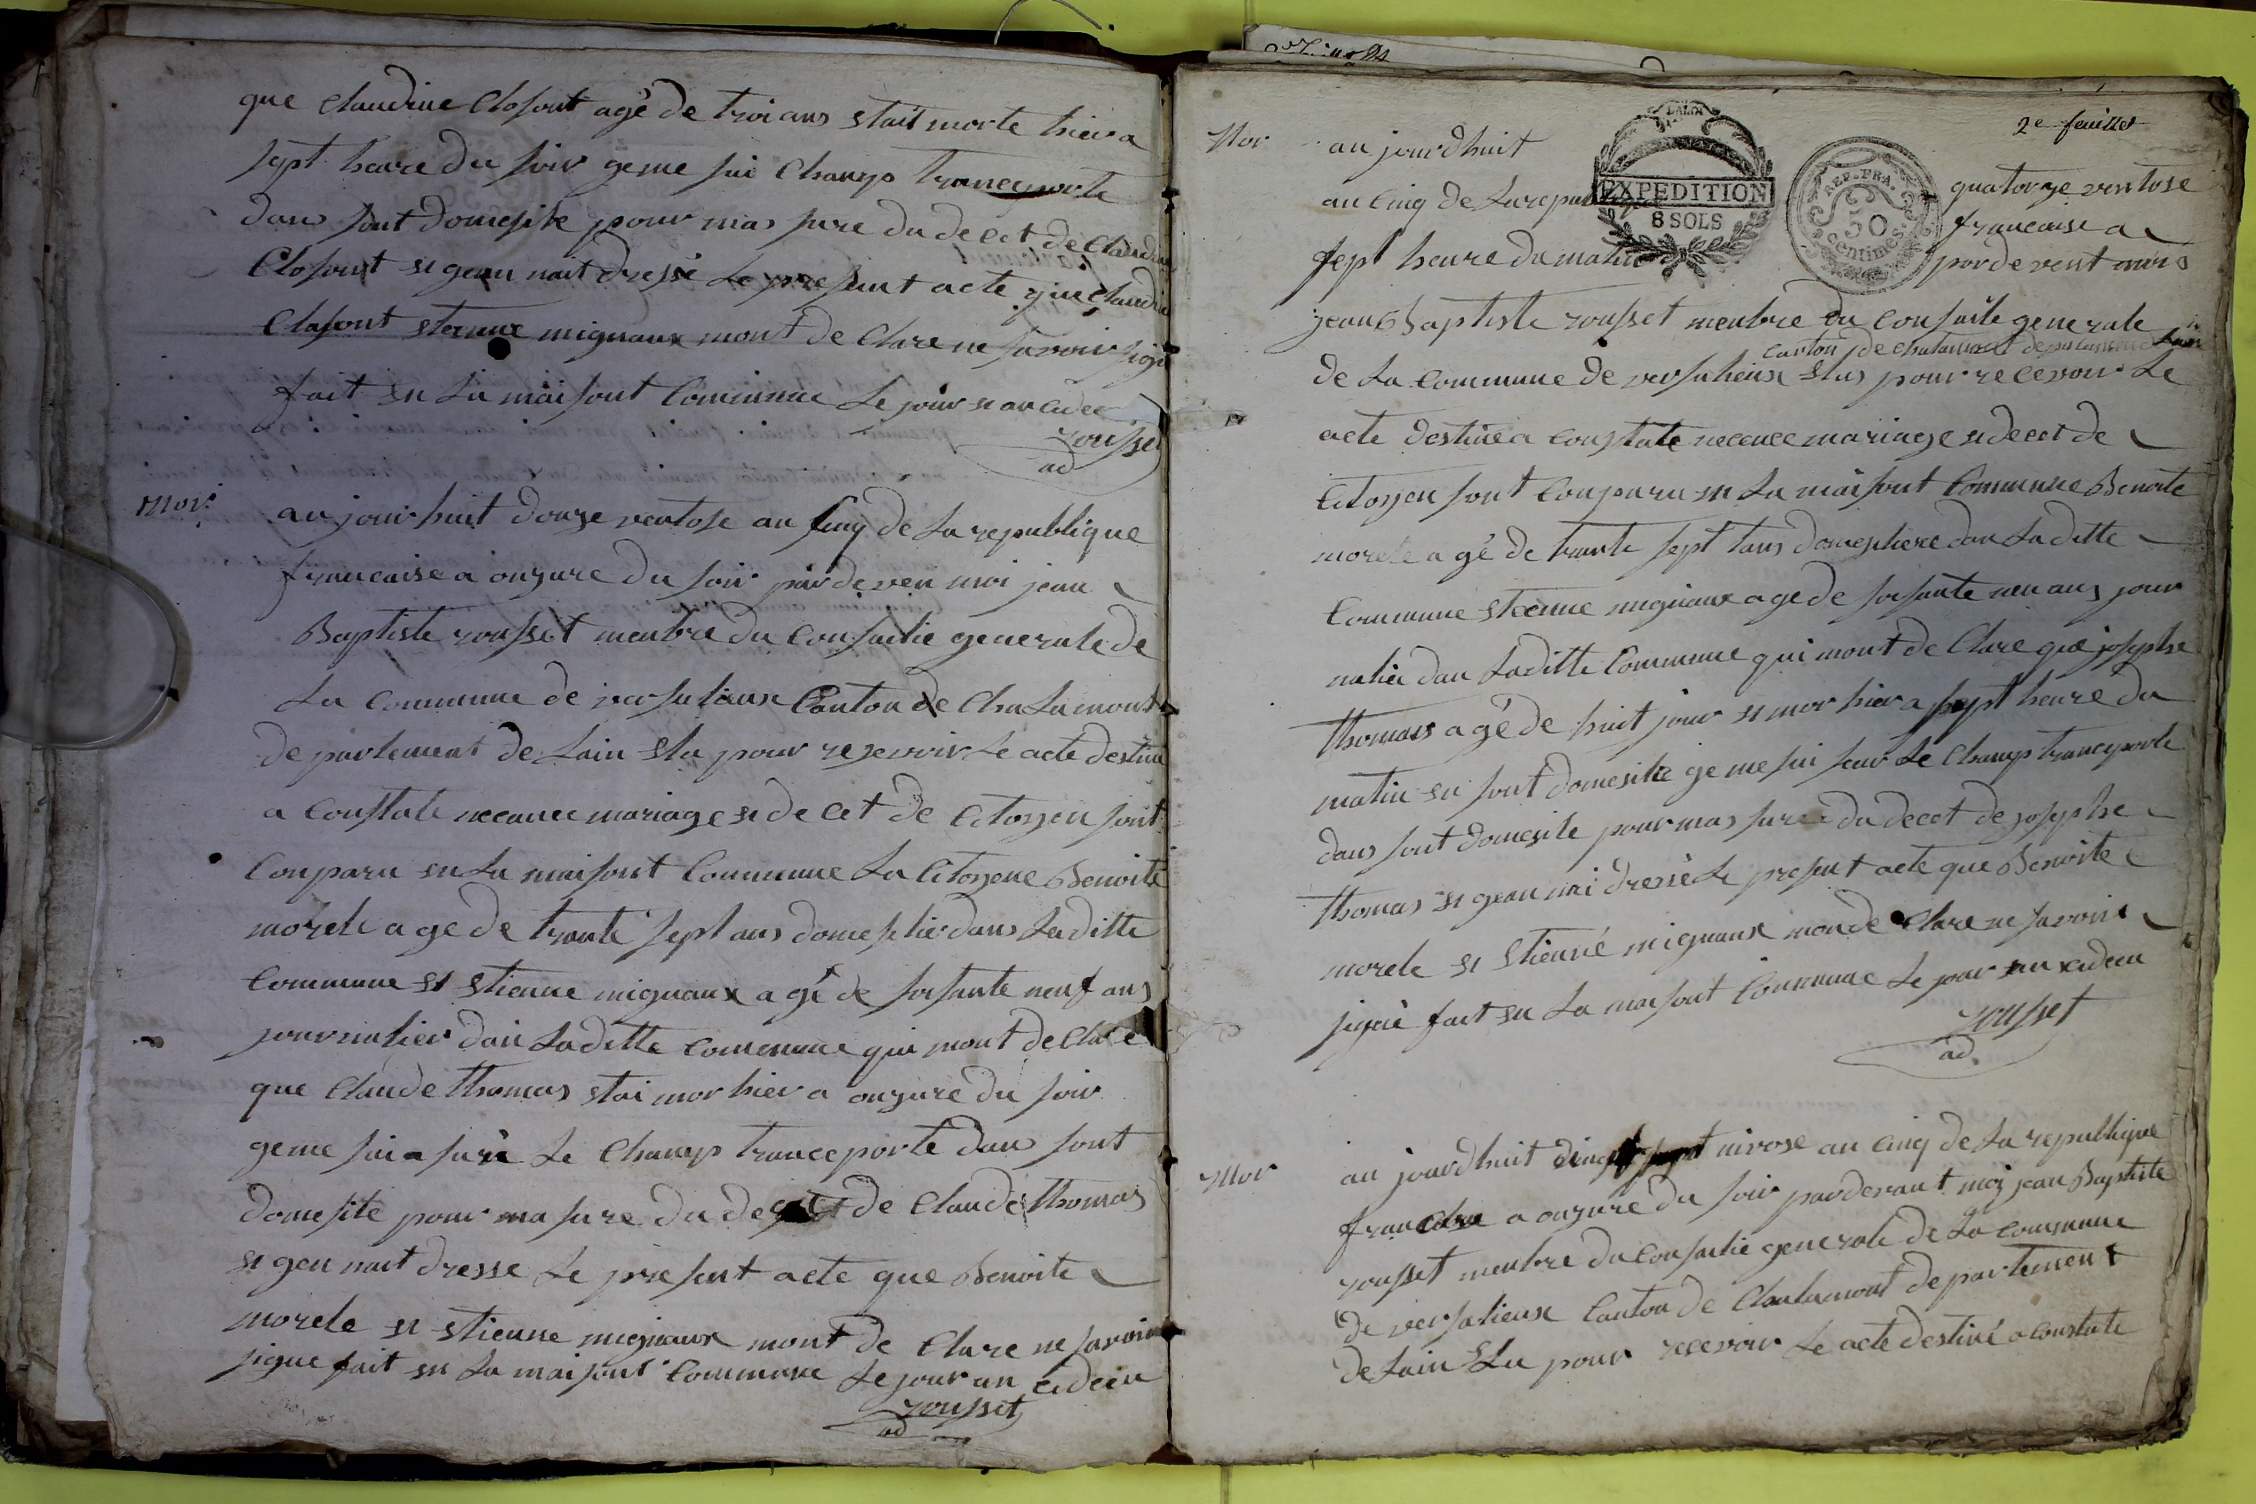 que Claudine Clofont agé de troi ans Etait morte hier a
sept heure du soir geme sui Champ tranceporte
dans sont domesile pour mas sure du decet de Claudine
Clofont et gean nait dressé Le presant acte que Claudine
Clafont Etienne mignaux mont de Clare ne savoir signe
fait en La maisont Commune Le jour et an cidec
rousset
ad
mor.
au jour huit douze ventose an sinq de La republique
francaise a onzure du soir par de ven moi jean
Baptiste rousset menbre du Consailie generale de
La Commune de versalieux Canton de ChaLamont
de partement de Lain Elu pour resevoir Le acte destine
a Constate necance mariage et de cet de Citoyen sont
Conparu en La maisont Commune La Citoyene Benoite
morele a ge de trante sept ans domesilier dans Laditte
Commune et Etienne mignaux a gé de soisante neuf ans
journalier dan Laditte Commune qui mont de Clare
que Claude thomas Etai mor hier a onzure du soir
geme sui a suré Le Champ tranceporte dans sont
domesile pour ma sure du decet de Claude thomas
et gen nait dresse Le presant acte que Benoite
morele et Etienne mignaux mont de Clare ne savoir
signe fait en La maisont Commune Le jour an cideu
rousset
ad
2e feuillet
LA LOI
EXPEDITION
8 SOLS
REP. FRA.
50
centimes.
Mor
au jourdhuit quatorze ventose
an Cinq de La republique francaise a
sept heure du matin par de vent mois
jean Baptiste rousset menbre du Consaile generale
canton de chalamont departement de Lain
de La Commune de versalieux Elus pour recevoir Le
acte destine a Constate necance mariage et decet de
Citoyen sont Conparu en La maisont Commune Benoite
morele a gé de trante sept tans domesiliere dan Laditte
Commune Etienne mignaux age de soisante neu ans jour
nalier dan Laditte Commune qui mont de Clare que josephe
thomas a gé de huit jour et mor hier a sept heure du
matin en sont domesile ge me sui sur Le Champ tranceporte
dans sont domesile pour mas sure du decet de josephe
thomas et gean nai dressé Le present acte que Benoite
morele et Etienne mignaux monde Clare ne savoir
signé fait en La maisont Commune Le jour an cideu
rousset
ad
Mor
au jourdhuit nivose an Cinq de La republique
a onzure du soir pardevant moi jean Baptiste
rousset menbre du Consailie generale de La Commune
de versalieux Canton de Chalamont departement
de Lain Elu pour recevoir Le acte destiné a Constate